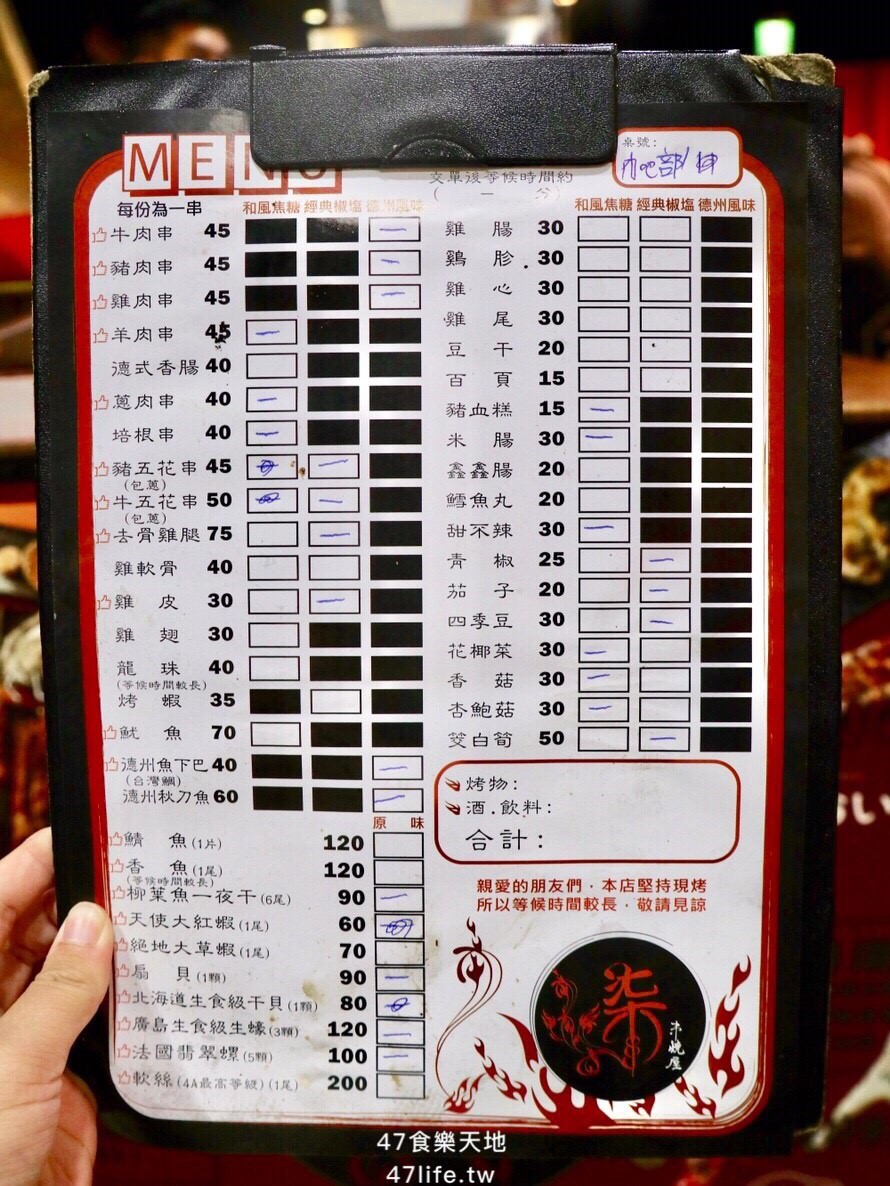 MENU
交單後等候時間約
( 一 分)
桌號:
每份為一串 和風焦糖 經典椒塩 德州風味
牛肉串 45
豬肉串 45
雞肉串 45
羊肉串 45
德式香腸 40
蔥肉串 40
培根串 40
豬五花串 45
(包蔥)
牛五花串 50
(包蔥)
去骨雞腿 75
雞軟骨 40
雞皮 30
雞翅 30
龍珠 40
(等候時間較長)
烤蝦 35
魷魚 70
德州魚下巴 40
(台灣鯛)
德州秋刀魚 60
原味
鯖魚(1片) 120
香魚(1尾) 120
(等候時間較長)
柳葉魚一夜干(6尾) 90
天使大紅蝦(1尾) 60
絕地大草蝦(1尾) 70
扇貝(1顆) 90
北海道生食級干貝(1顆) 80
廣島生食級生蠔(3顆) 120
法國翡翠螺(5顆) 100
軟絲(4A最高等級)(1尾) 200
和風焦糖 經典椒塩 德州風味
雞腸 30
鷄胗 30
雞心 30
雞尾 30
豆干 20
百頁 15
豬血糕 15
米腸 30
鑫鑫腸 20
鱈魚丸 20
甜不辣 30
青椒 25
茄子 20
四季豆 30
花椰菜 30
香菇 30
杏鮑菇 30
筊白筍 50
烤物:
酒.飲料:
合計:
親愛的朋友們．本店堅持現烤
所以等候時間較長．敬請見諒
柒
串燒屋
47食樂天地
47life.tw